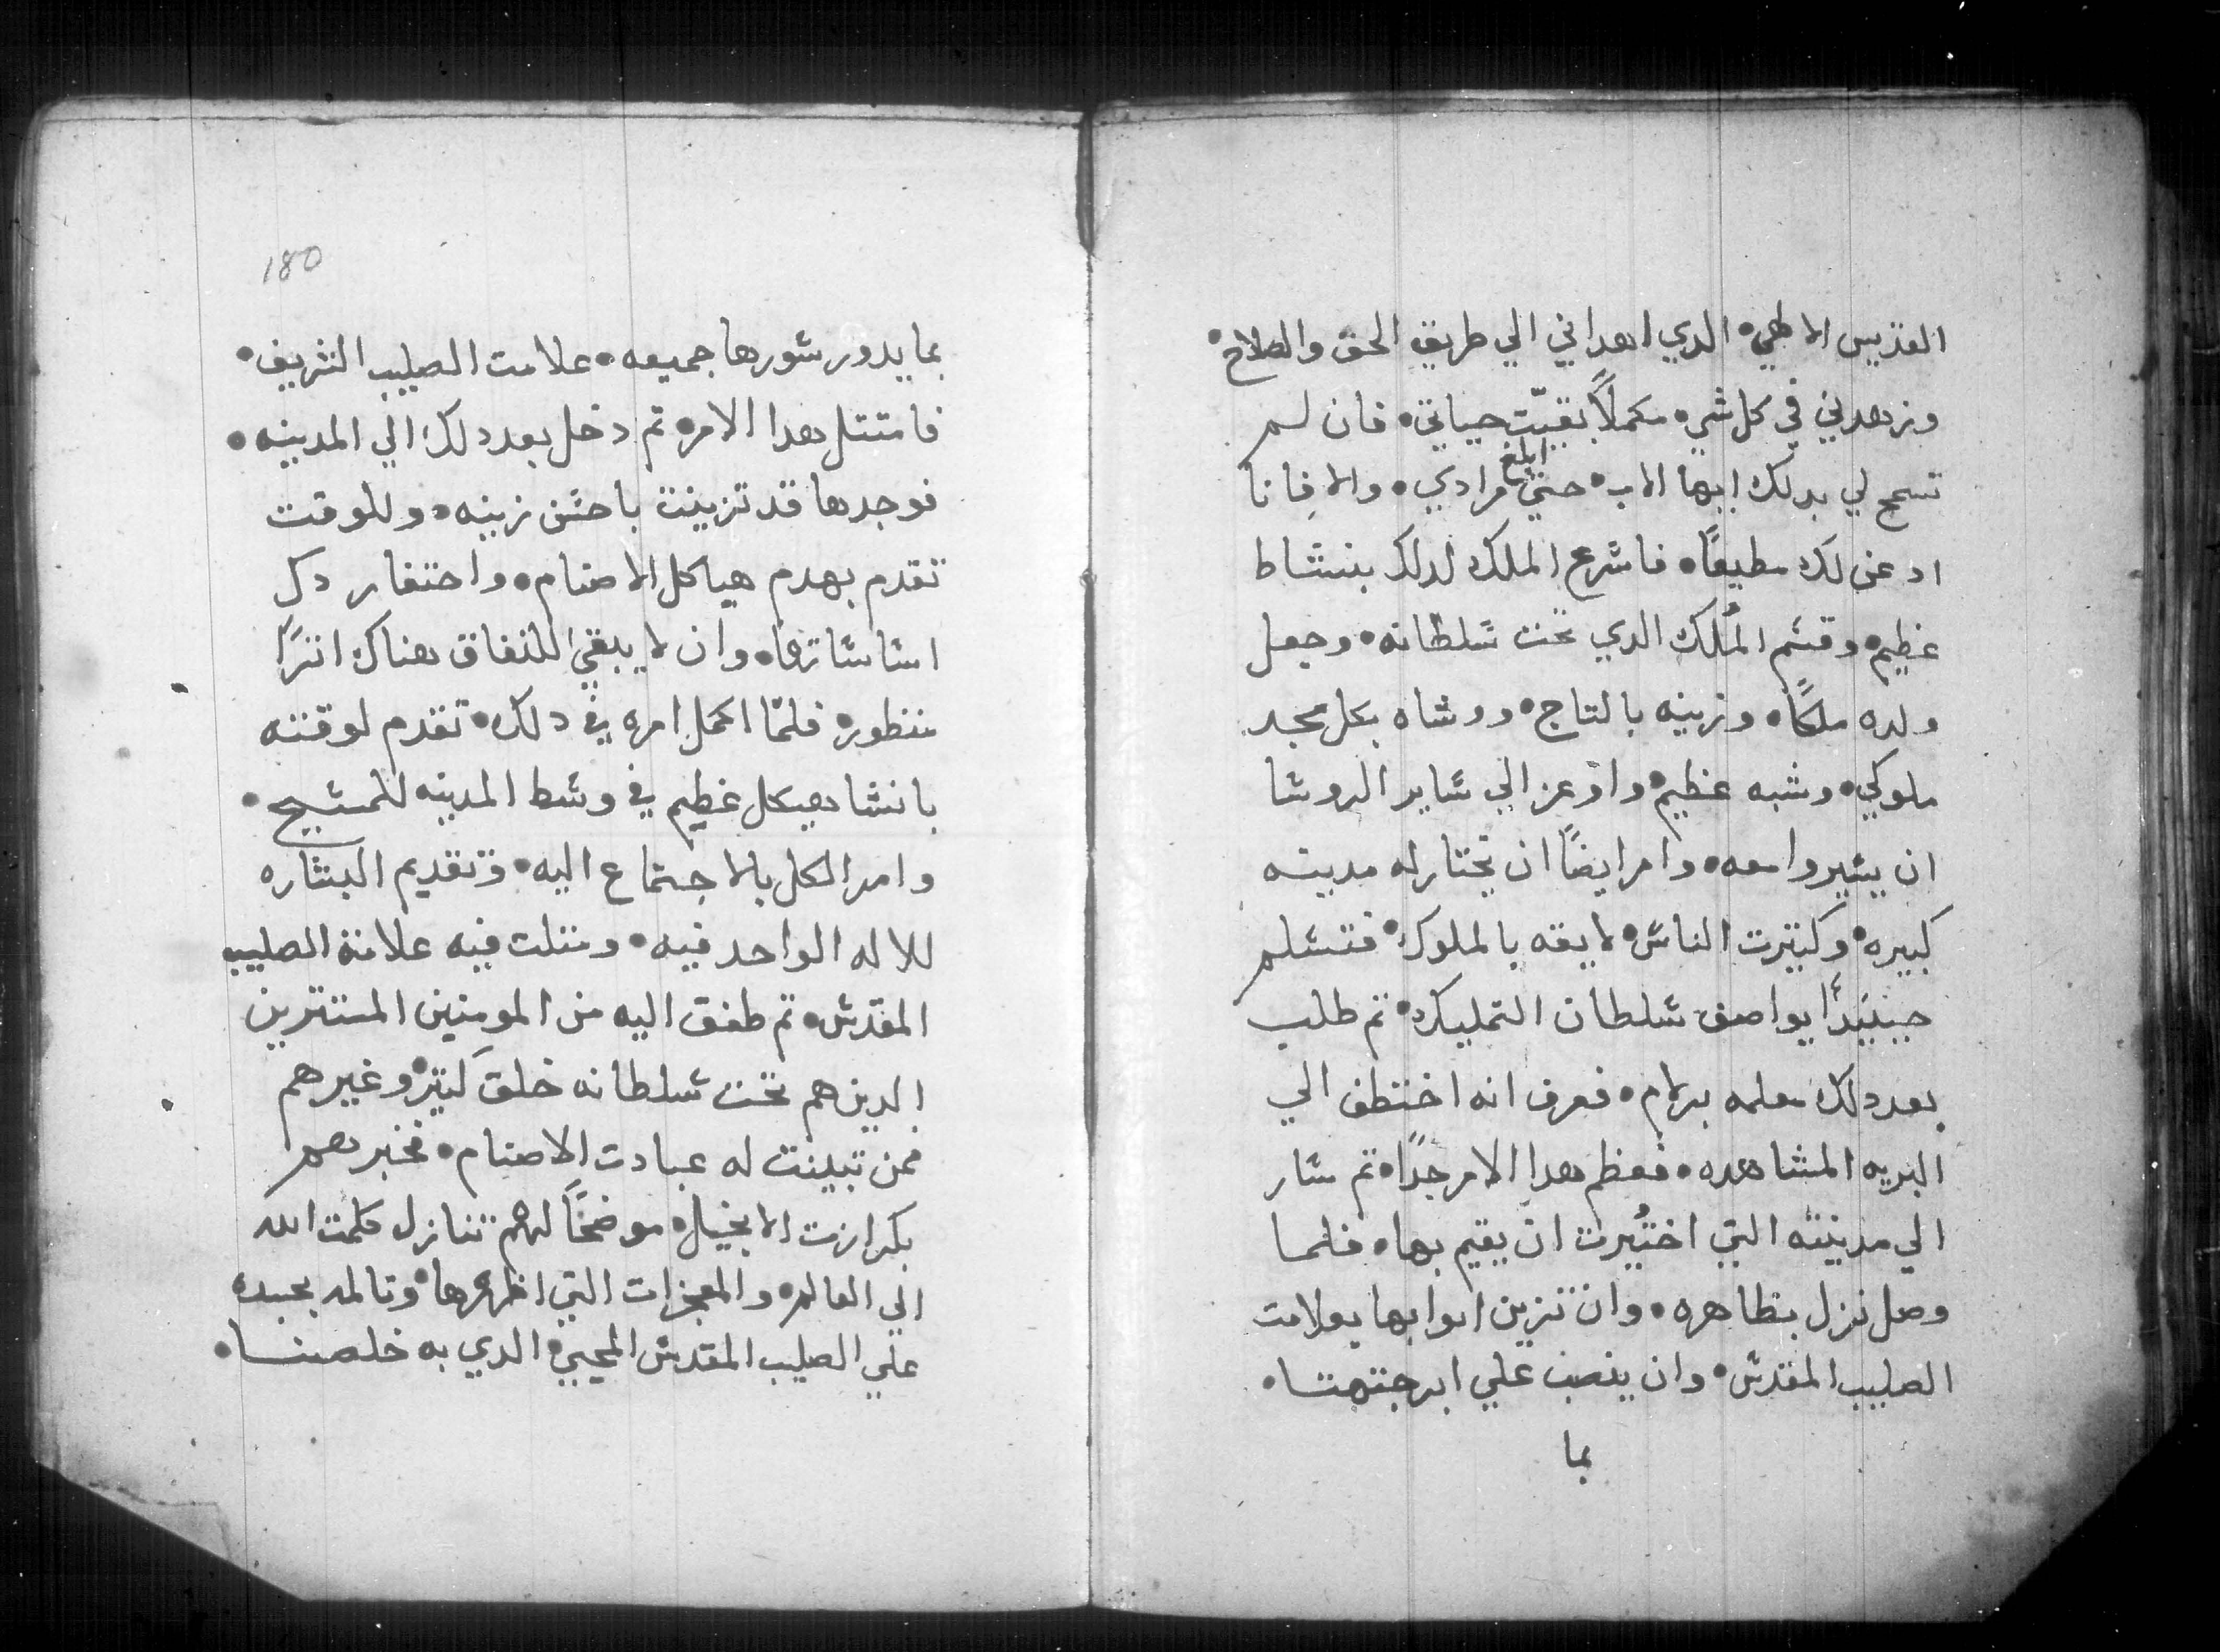 القديس الالهي • الدي اهداني الي طريق الحق والصلاح •
وزهدني في كل شي • مكملاً بقيّت حياتي • فان لم
تسمح لي بدلك ايها الاب • حتي ابلغ مرادي • والا فانا
ادعن لك مطيعًا • فاسرع الملك لدلك بنشاط
عظيم • وقسم المُلك الدي تحت سلطانه • وجعل
ولده ملكًا • وزينه بالتاج • ووشاه بكل مجد
ملوكي • وشبه عظيم • واوعز الي ساير الروسا
ان يسيروا معه • وامر ايضًا ان تختار له مدينه
كبيره • وكتيرت الناس • لايقه بالملوك • فتسلم
حينيدًا يواصف سلطان التمليك • تم طلب
بعد دلك معلمه برلام • فعرف انه اختطف الي
البريه المشاهده • فعظم هدا الامر جدًا • تم سار
الي مدينته التي اختُيرت ان يقيم بها • فلما
وصل نزل بظاهره • وان تزين ابوابها بعلامت
الصليب المقدس • وان ينصب علي ابرجتها •
بما
180
بما يدور سورها جميعه • علامت الصليب الشريف •
فامتتل هدا الامر • تم دخل بعد دلك الي المدينه •
فوجدها قد تزينت باحسن زينه • وللوقت
تقدم بهدم هياكل الاصنام • واحتفار دكل
اساساتها • وان لا يبقي للنفاق هناك اترًا
منظور • فلمّا اكمل امره في دلك • تقدم لوقته
بانشا هيكل عظيم في وسط المدينه للمسيح •
وامر الكل بالاجتماع اليه • وتقديم البشاره
للاله الواحد فيه • ومتلت فيه علامة الصليب
المقدس • تم طفق اليه من المومنين المستترين
الدين هم تحت سلطانه خلق كتير • وغيرهم
ممن تبينت له عبادت الاصنام • فخبرهم
بكرازت الانجيل • موضحًا لهم تنازل كلمت الله
الي العالم • والمعجزات التي اظهرها • وتالمه بجسده
علي الصليب المقدس المحيي • الدي به خلصنا •